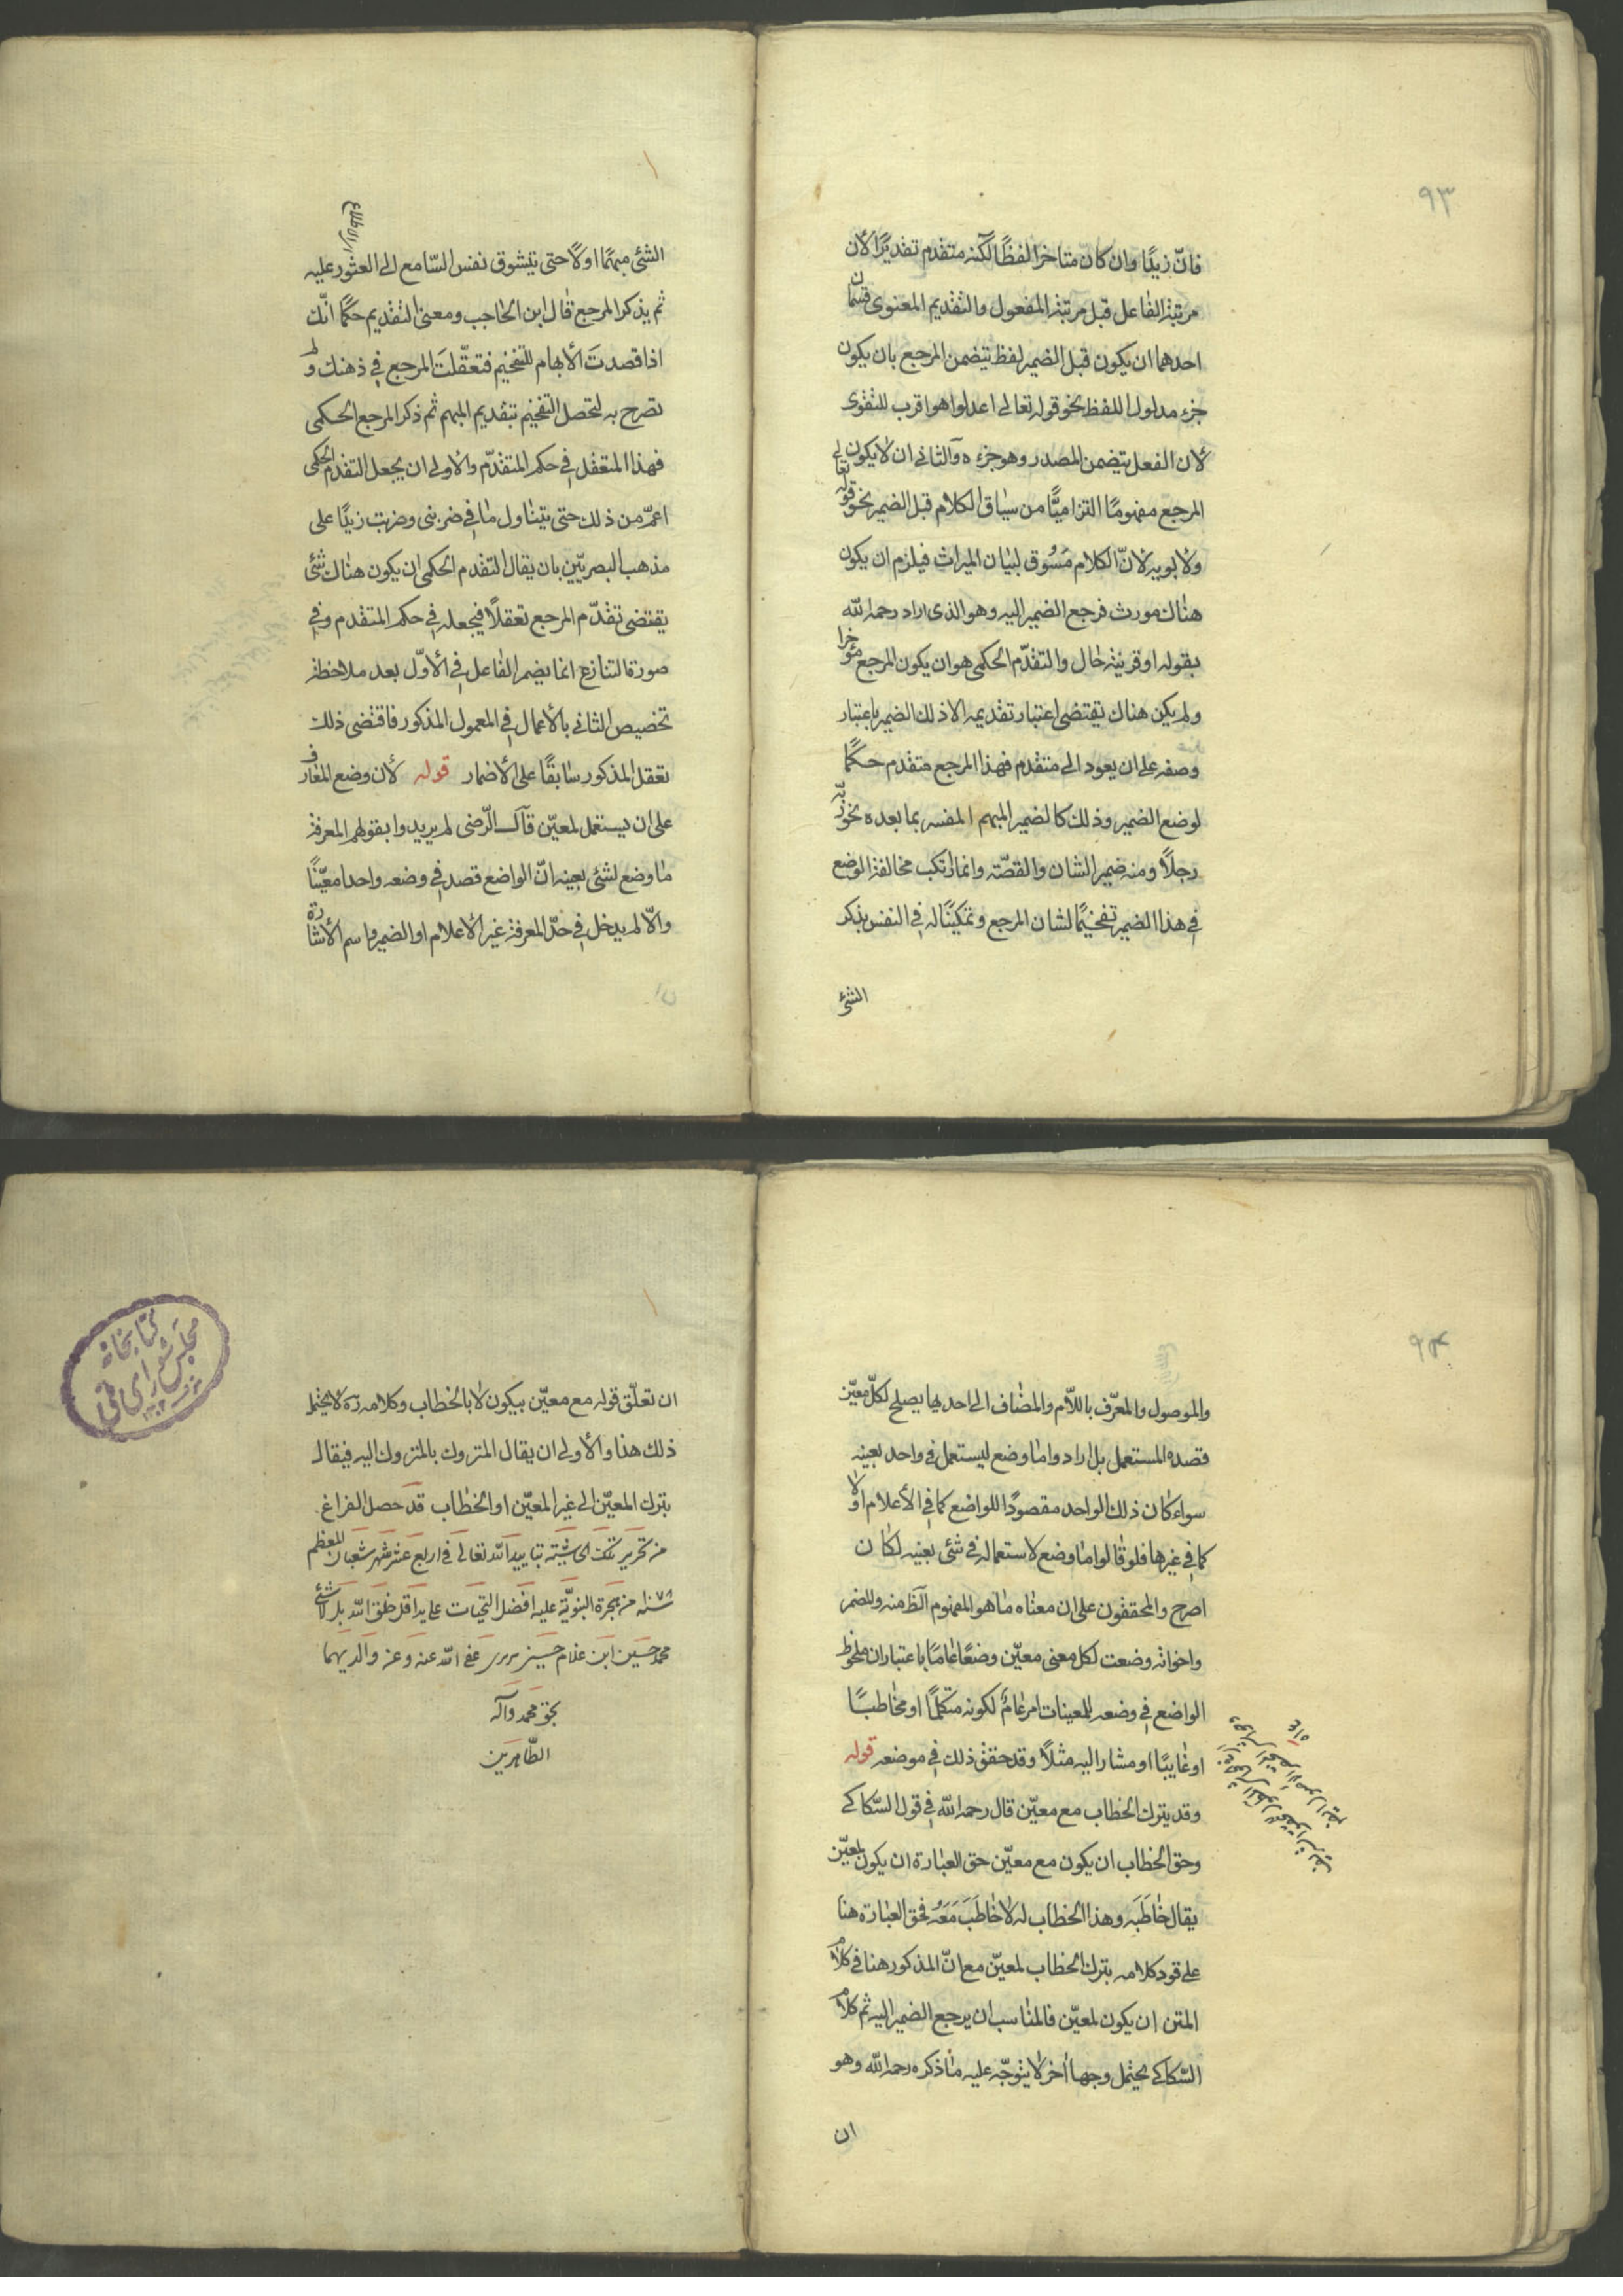 ٩٣
فانّ زيدًا وان كان متاخرا لفظًا لكنه متقدم تقديرًا لأن
مرتبة الفاعل قبل مرتبة المفعول والتقديم المعنوى قسمان
احدهما ان يكون قبل الضمير لفظ يتضمن المرجع بان يكون
جزء مدلول اللفظ نحو قوله تعالى اعدلوا هو اقرب للتقوى
لان الفعل يتضمن المصدر وهو جزءه والثانى ان لا يكون
المرجع مفهومًا التزاميًّا من سياق الكلام قبل الضمير نحو قوله تعالى
ولابويه لانّ الكلام مَسُوق لبيان الميراث فيلزم ان يكون
هناك مورث فرجع الضمير اليه وهو الذى اراد رحمه الله
بقوله او قرينة حال والتقدّم الحكمى هو ان يكون المرجع مؤخرا
ولم يكن هناك يقتضى اعتبار تقديمه الا ذلك الضمير باعتبار
وصفه على ان يعود الى متقدم فهذا المرجع متقدم حكمًا
لوضع الضمير وذلك كالضمير المبهم المفسر بما بعده نحو ربّه
رجلًا ومنه ضمير الشان والقصّة وانما ارتكب مخالفة الوضع
فى هذا الضمير تفخيمًا لشان المرجع وتمكينًا له فى النفس بذكر
الشئ
الشئ مبهمًا اولًا حتى يتشوق نفس السّامع الى العثور عليه
او الاطلاع
ثم يذكر المرجع قال ابن الحاجب ومعنى التقديم حكمًا انّك
اذا قصدتَ الأبهام للتفخيم فتعقّلتَ المرجع فى ذهنك ولم
تصرح به لتحصل التفخيم بتقديم المبهم ثم ذكر المرجع الحكمى
فهذا المتعقل فى حكم المتقدّم والاولى ان يجعل التقدم الحكمى
اعمّ من ذلك حتى يتناول ما فى ضربنى وضربت زيدًا على
مذهب البصريّين بان يقال التقدم الحكمى ان يكون هناك شئ
يقتضى تقدّم المرجع تعقلًا فيجعله فى حكم المتقدم وفى
صورة التنازع انما يضمر الفاعل فى الأوّل بعد ملاحظة
تخصيص الثانى بالأعمال فى المعمول المذكور فاقتضى ذلك
تعقل المذكور سابقًا على الأضمار قوله لأن وضع المعارف
على ان يستعمل لمعيّن قال الرّضى لم يريدوا بقولهم المعرفة
ما وضع لشئ بعينه انّ الواضع قصد فى وضعه واحدا معيّنًا
والّا لم يدخل فى حدّ المعرفة غير الأعلام او الضمير واسم الأشارة
٩٤
والموصول والمعرّف باللّام والمضاف الى احديها يصلح لكلّ معيّن
قصده المستعمل بل اراد واما وضع ليستعمل فى واحد بعينه
سواء كان ذلك الواحد مقصودًا للواضع كما فى الأعلام او لا
كما فى غيرها فلو قالوا ما وضع لاستعماله فى شئ بعينه لكان
اصرح والمحققون على ان معناه ما هو المفهوم الظ منه وللضمر
واخواته وضعت لكل معنى معيّن وضعًا عامًا باعتباران ملحوظ
الواضع فى وضعه للمعينات امر عامٌ لكونه متكلمًا او مخاطبًا
او غايبًا او مشار اليه مثلًا وقد حقق ذلك فى موضعه قوله
وقد يترك الخطاب مع معيّن قال رحمه الله فى قول السّكاكى
وحق الخطاب ان يكون مع معيّن حق العبارة ان يكون لمعيّن
يقال خاطَبَه وهذا الخطاب له لا خاطَبَ مَعَهُ فحق العبارة هنا
على قود كلامه بترك الخطاب لمعيّن مع انّ المذكور هنا فى كلام
المتن ان يكون لمعيّن فالمناسب ان يرجع الضمير اليه ثم كلام
السّكاكى يحتمل وجها أخر لا يتوجّه عليه ما ذكره رحمه الله وهو
ان
ان تعلّق قوله مع معيّن بيكون لا بالخطاب وكلامه ره لا يحتمل
ذلك هنا والأولى ان يقال المتروك بالمتروك اليه فيقال
بترك المعيّن الى غير المعيّن او الخطاب قد حصل الفراغ
من تحرير تلك الحاشيته بتاييد الله تعالى فى اربع عشر شهر شعبان المعظم
من هجرة النبويّة عليه افضل التحيات على يد اقل خلق الله بل لا شئ
محمد حسين ابن غلام حسين عفى الله عنه وعن والديهما
بحق محمد وآله
الطّاهرين
كتابخانه
مجلس شوراى ملى